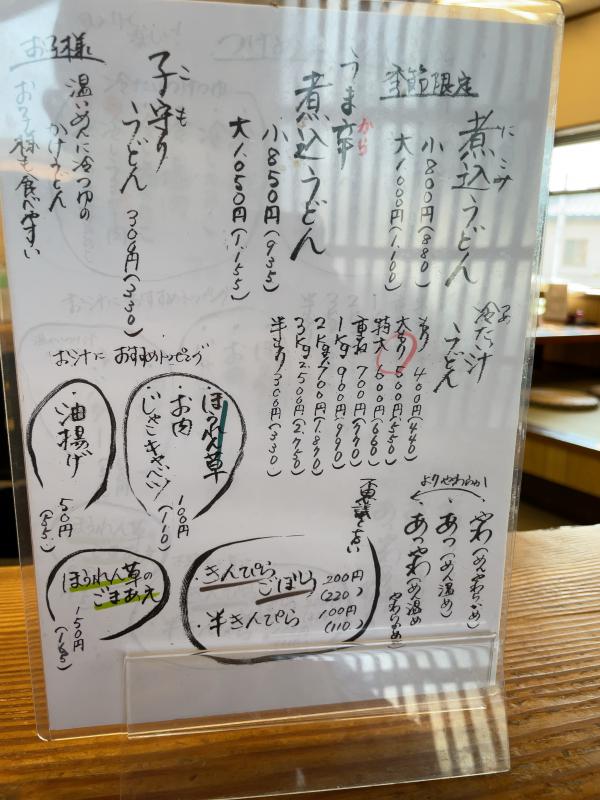 季節限定
煮込うどん
にこみ
小800円(880)
大1,000円(1,100)
うま辛煮込うどん
から
小850円(935)
大1,050円(1,155)
子守りうどん 300円(330)
こも
お子様
温いめんに冷つゆの
かけうどん
お子様も食べやすい
冷たい汁
うどん
400円(440)
大もり 500円(550)
特大 600円(660)
重ね 700円(770)
1Kg 900円(990)
2Kg 1,700円(1,870)
3Kg 2,500円(2,750)
半もり 300円(330)
よりやわらか
・やわ(めんやわらかめ)
・あつ(めん温め)
・あつやわ(めん温めやわらかめ)
お汁におすすめトッピング
・ほうれん草
・お肉
・じゃこキャベツ
100円
(110)
・油揚げ
50円
(55)
きんぴら
ごぼう
200円
(220)
・半きんぴら
100円
(110)
ほうれん草の
ごまあえ
150円
(165)